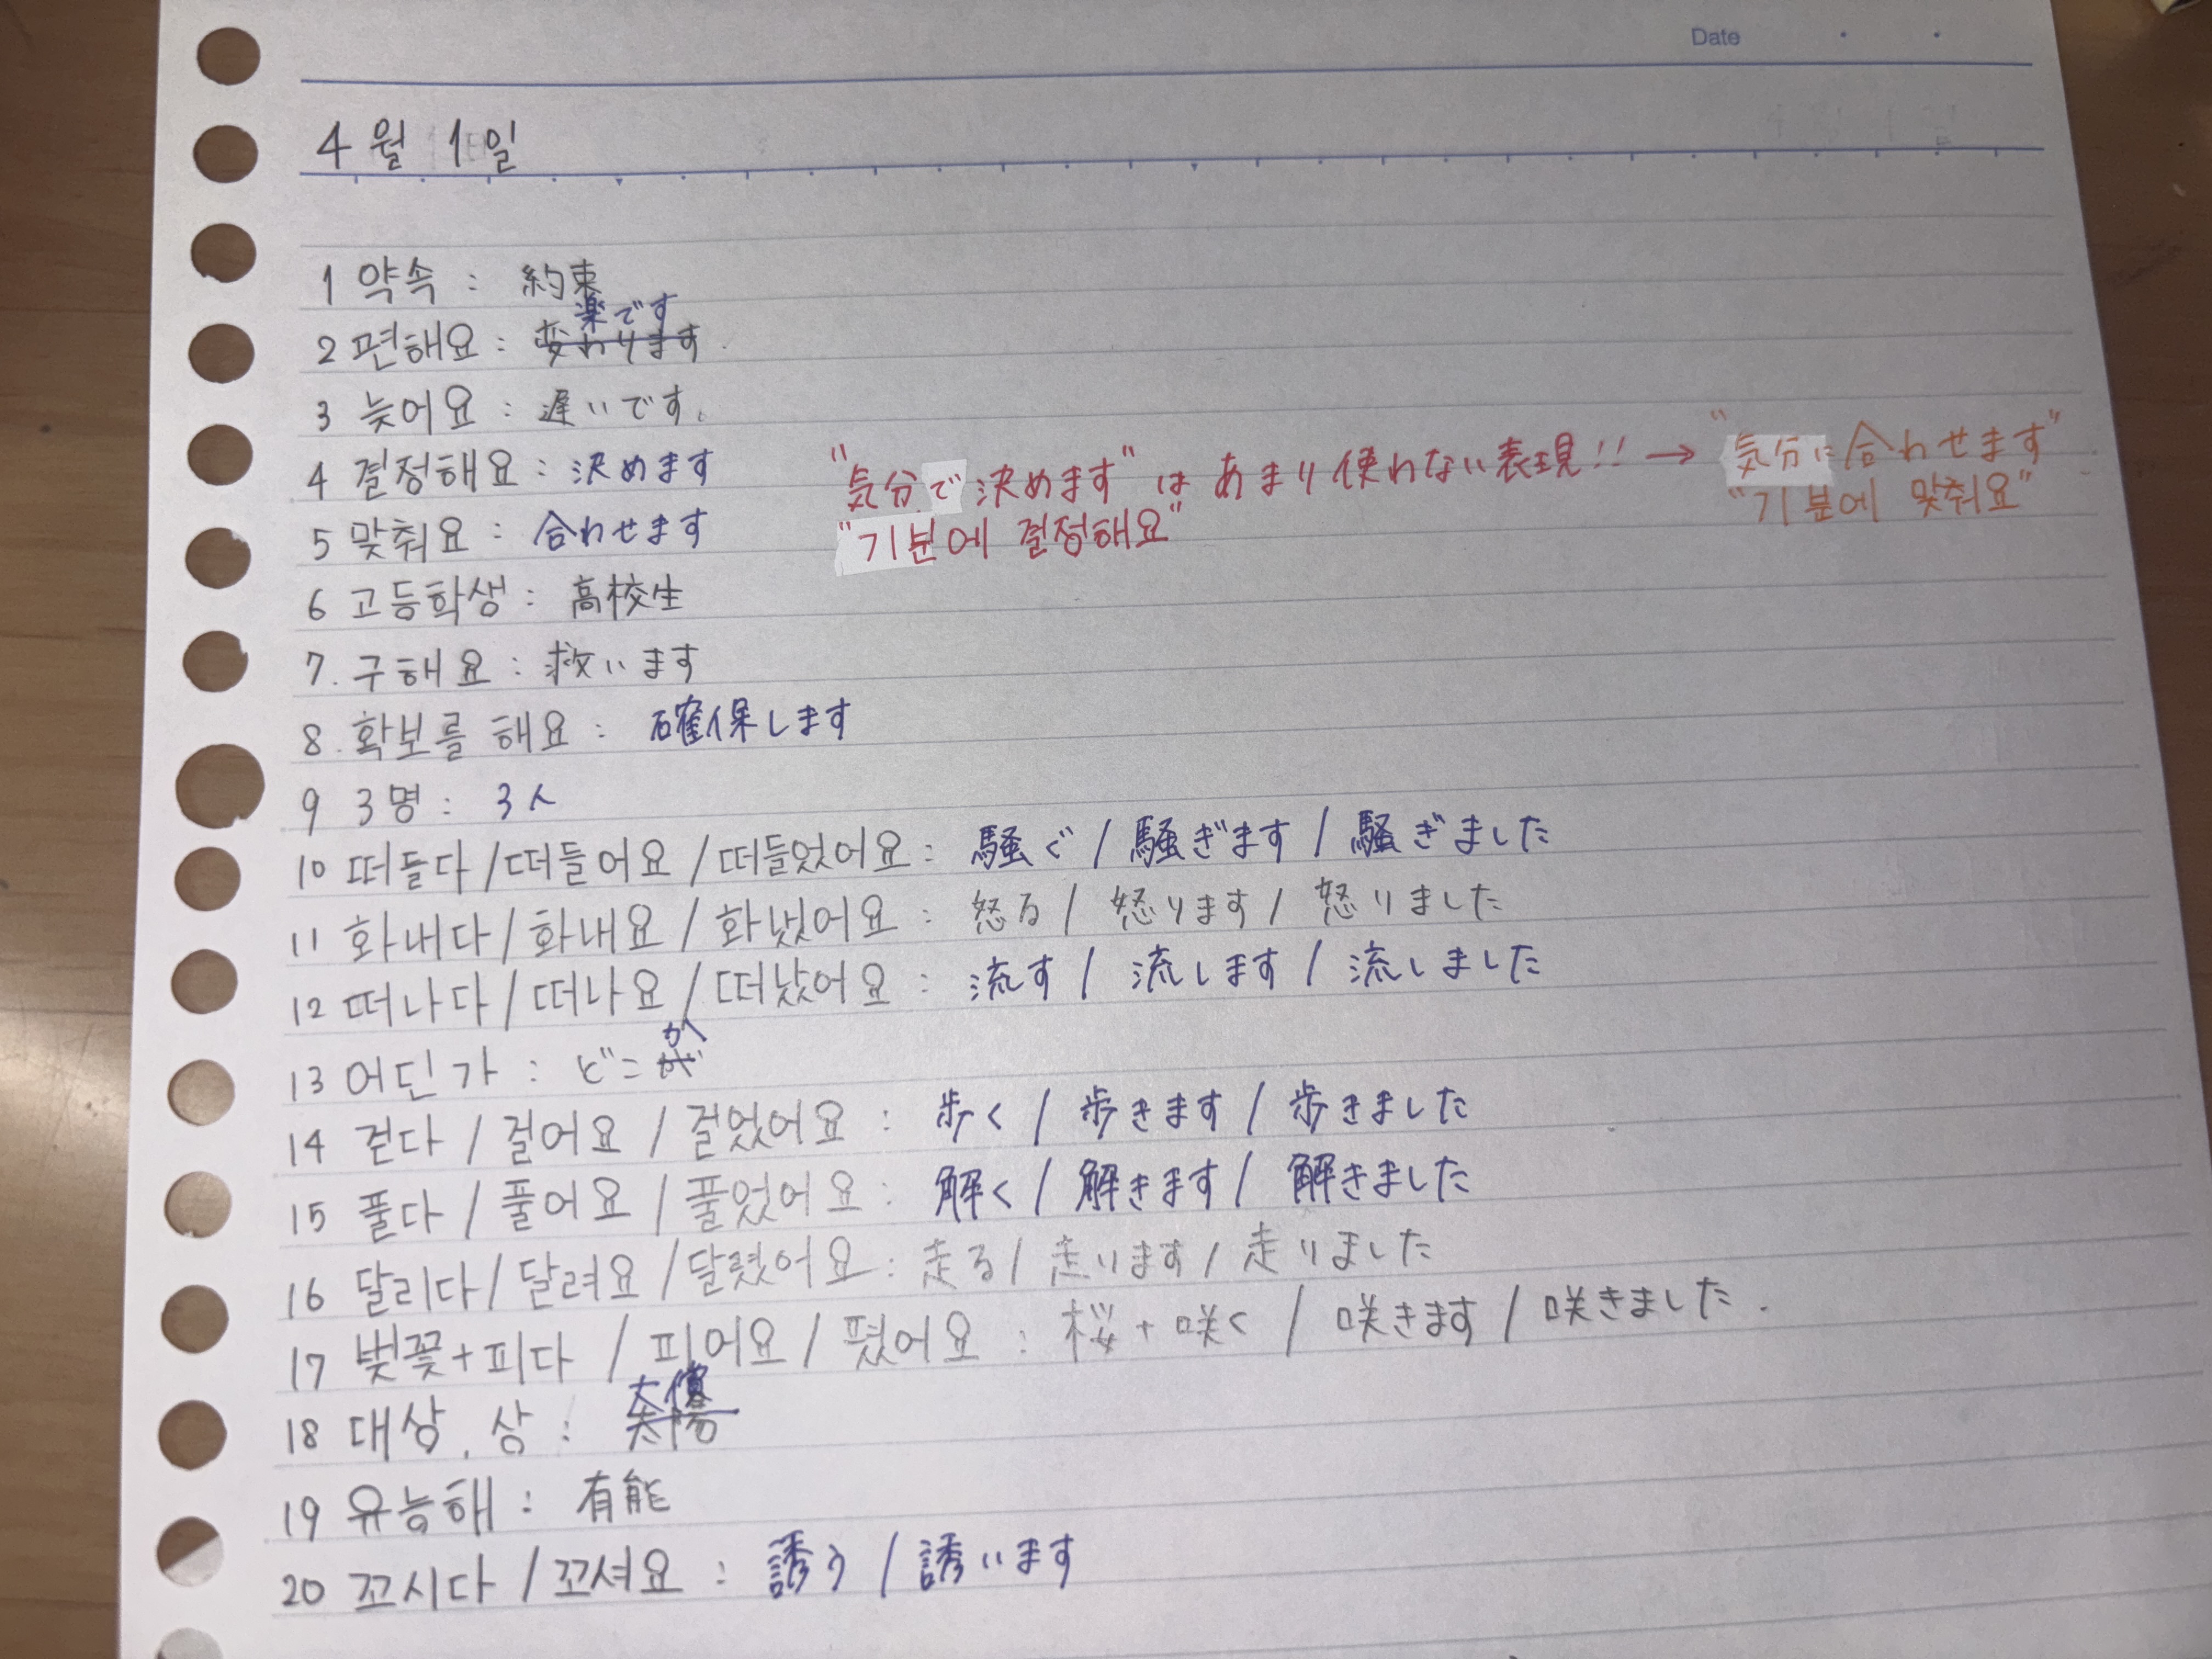 Date
4월 1일
1 약속 : 約束
楽です
2 편해요 : 変わります
3 늦어요 : 遅いです。
4 결정해요 : 決めます "気分で決めます"は あまり使わない表現!! → "気分に合わせます"
5 맞춰요 : 合わせます "기분에 결정해요" "기분에 맞춰요"
6 고등학생 : 高校生
7. 구해요 : 救います
8. 확보를 해요 : 確保します
9 3명 : 3人
10 떠들다 / 떠들어요 / 떠들었어요 : 騒ぐ / 騒ぎます / 騒ぎました
11 화내다 / 화내요 / 화냈어요 : 怒る / 怒ります / 怒りました
12 떠나다 / 떠나요 / 떠났어요 : 流す / 流します / 流しました
か
13 어딘가 : どこが
14 걷다 / 걸어요 / 걸었어요 : 歩く / 歩きます / 歩きました
15 풀다 / 풀어요 / 풀었어요 : 解く / 解きます / 解きました
16 달리다 / 달려요 / 달렸어요 : 走る / 走ります / 走りました
17 벚꽃+피다 / 피어요 / 폈어요 : 桜+咲く / 咲きます / 咲きました.
18 대상, 상 :
19 유능해 : 有能
20 꼬시다 / 꼬셔요 : 誘う / 誘います